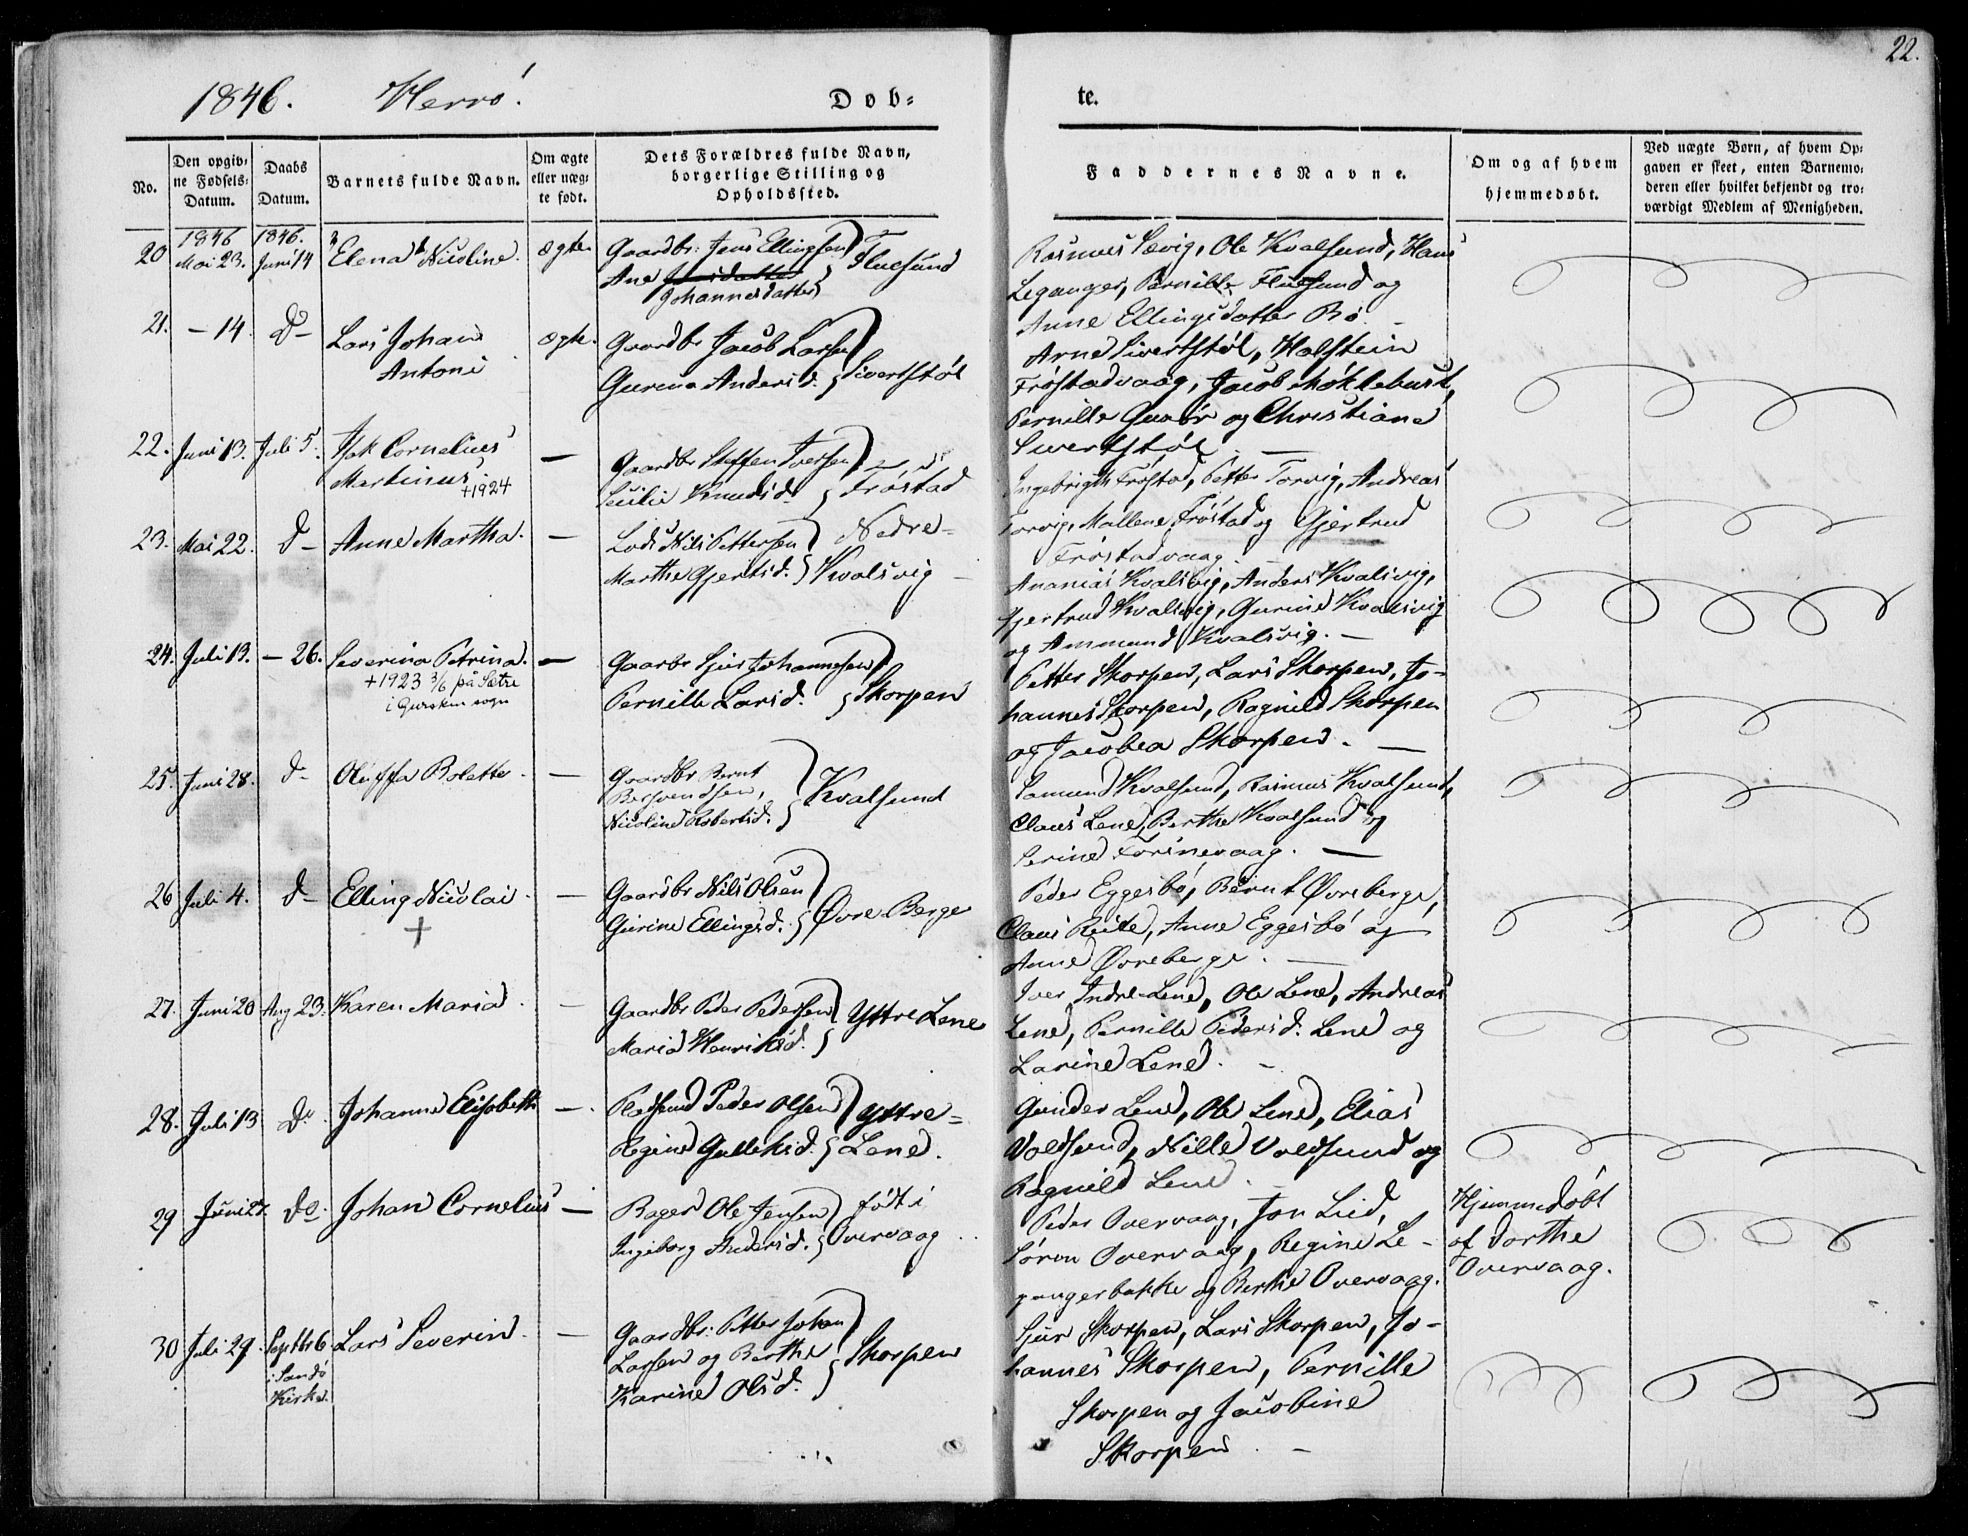 22.
1846. Herrö.
Døb- te.
No.
Den opgiv-
ne Fødsels-
Datum.
Daabs
Datum.
Barnets fulde Navn.
Om ægte
eller uæg-
te født.
Dets Forældres fulde Navn,
borgerlige Stilling og
Opholdssted.
Faddernes Navne.
Om og af hvem
hjemmedøbt.
Ved uægte Børn, af hvem Op-
gaven er skeet, enten Barnemo-
deren eller hvilket bekjendt og tro-
værdigt Medlem af Menigheden.
20 1846 Mai 23. 1846. Juni 14 Elena Nicoline. ægte
Gaardbr: Jens Ellingsen
Ane Johannesdatter
Fluesund
Rasmus Sævig, Ole Kvalsund, Hans
Leganger, Pernille Fluesund og
Anne Ellingsdatter Bö. -
21. - 14. D- Lars Johan
Antoni
ægte.
Gaardbr Jacob Larsen
Gurina Andersd.
Sivertstøl
Arne Sivertstøl, Holstein
Frøstadvaag, Jacob Møklebust,
Pernille og Christiane
Sivertstøl. -
22. Juni 13. Juli 5. Isak Cornelius
Martinus
+1924
-
Gaardbr Steffen Iversen
Sicilie Knudsd.
Frøstad
Ingebrigth Frøstad, Petter Torvig, Andreas
Torvig, Mallene Frøstad og Gjertrud
Frøstadvaag. -
23. Mai 22. D- Anne Martha. -
Lods Nils Pettersen
Marthe Gjertsd.
Nedre-
Kvalsvig -
Ananias Kvalsvig, Anders Kvalsvig,
Gjertrud Kvalsvig, Gurine Kvalsvig
og Ammund Kvalsvig. -
24. Juli 13. - 26. Severina Petrina. -
+1923 3/6 på Sætre
i Gursken sogn
Gaarbr Sjur Johannesen
Pernille Larsd.
Skorpen
Petter Skorpen, Lars Skorpen, Jo-
hannes Skorpen, Ragnild Skorpen
og Jacobea Skorpen. -
25. Juni 28. D- Oluffa Bolette. -
Gaardbr Bernt
Berhvendsen,
Nicoline Robertsd.
Kvalsund
Samund Kvalsund, Rasmus Kvalsund,
Claus Lene, Berthe Kvalsund og
Serine Torinevaag. -
26 Juli 4. D- Elling Nicolai. -
+
Gaardbr Nils Olsen
Gurine Ellingsd.
Øvre Berge
Peder Eggesbö, Bernt Øvreberge,
Claus Reite, Anne Eggesbö og
Anne Øvreberge. -
27. Juni 20 Aug 23. Karen Maria. -
Gaardbr Peder Pedersen
Maria Henriksd.
Yttre Lene
Iver Indre-Lene, Ole Lene, Andreas
Lene, Pernille Pedersd. Lene og
Larine Lene. -
28. Juli 13 Do. Johanne Elisabeth -.
Pladsmd Peder Olsen
Regine Gulleksd.
Yttre-
Lene.
Gunder Lene, Ole Lene, Elias
Voldsund, Nille Voldsund og
Ragnild Lene. -
29 Juni 27. Do. Johan Cornelius -
Bager Ole Jensen
Ingeborg Andersd.
født i
Overvaag
Peder Overvaag, Jon Lied,
Søren Overvaag, Regine Le-
gangerbakke og Berthe Overvaag.
Hjemmedöbt
af Dorthe
Overvaag.
30 Juli 29. Septbr 6
i Sandö
Kirke.
Lars Severin. -
Gaardbr: Petter Johan
Larsen og Berthe
Karine Olsd.
Skorpen
Sjur Skorpen, Lars Skorpen, Jo-
hannes Skorpen, Pernille
Skorpen og Jacobine
Skorpen. -